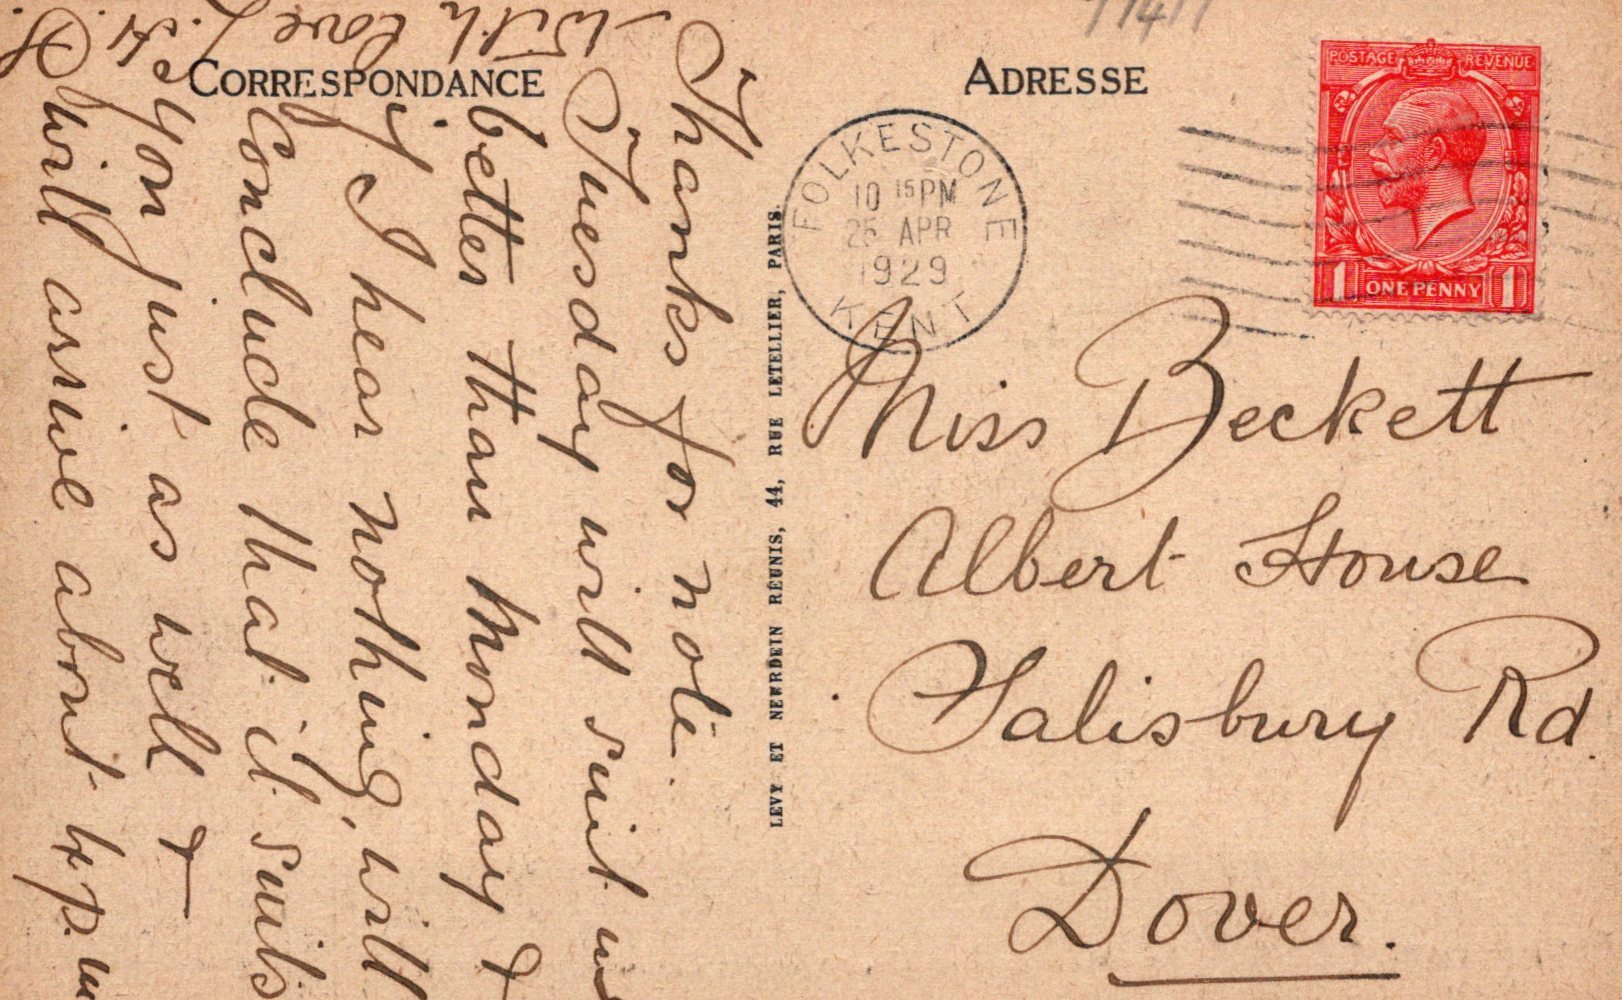 CORRESPONDANCE
ADRESSE
POSTAGE REVENUE
1 ONE PENNY 1
FOLKESTONE
10 15PM
25 APR
1929
KENT
Miss Beckett
Albert House
Salisbury Rd.
Dover.
LEVY ET NEURDEIN RÉUNIS, 44, RUE LETELLIER, PARIS.
Thanks for note.
Tuesday will suit me
better than Monday &
if I hear nothing, will
conclude that it suits
you just as well &
will arrive about 4 p.m
With love